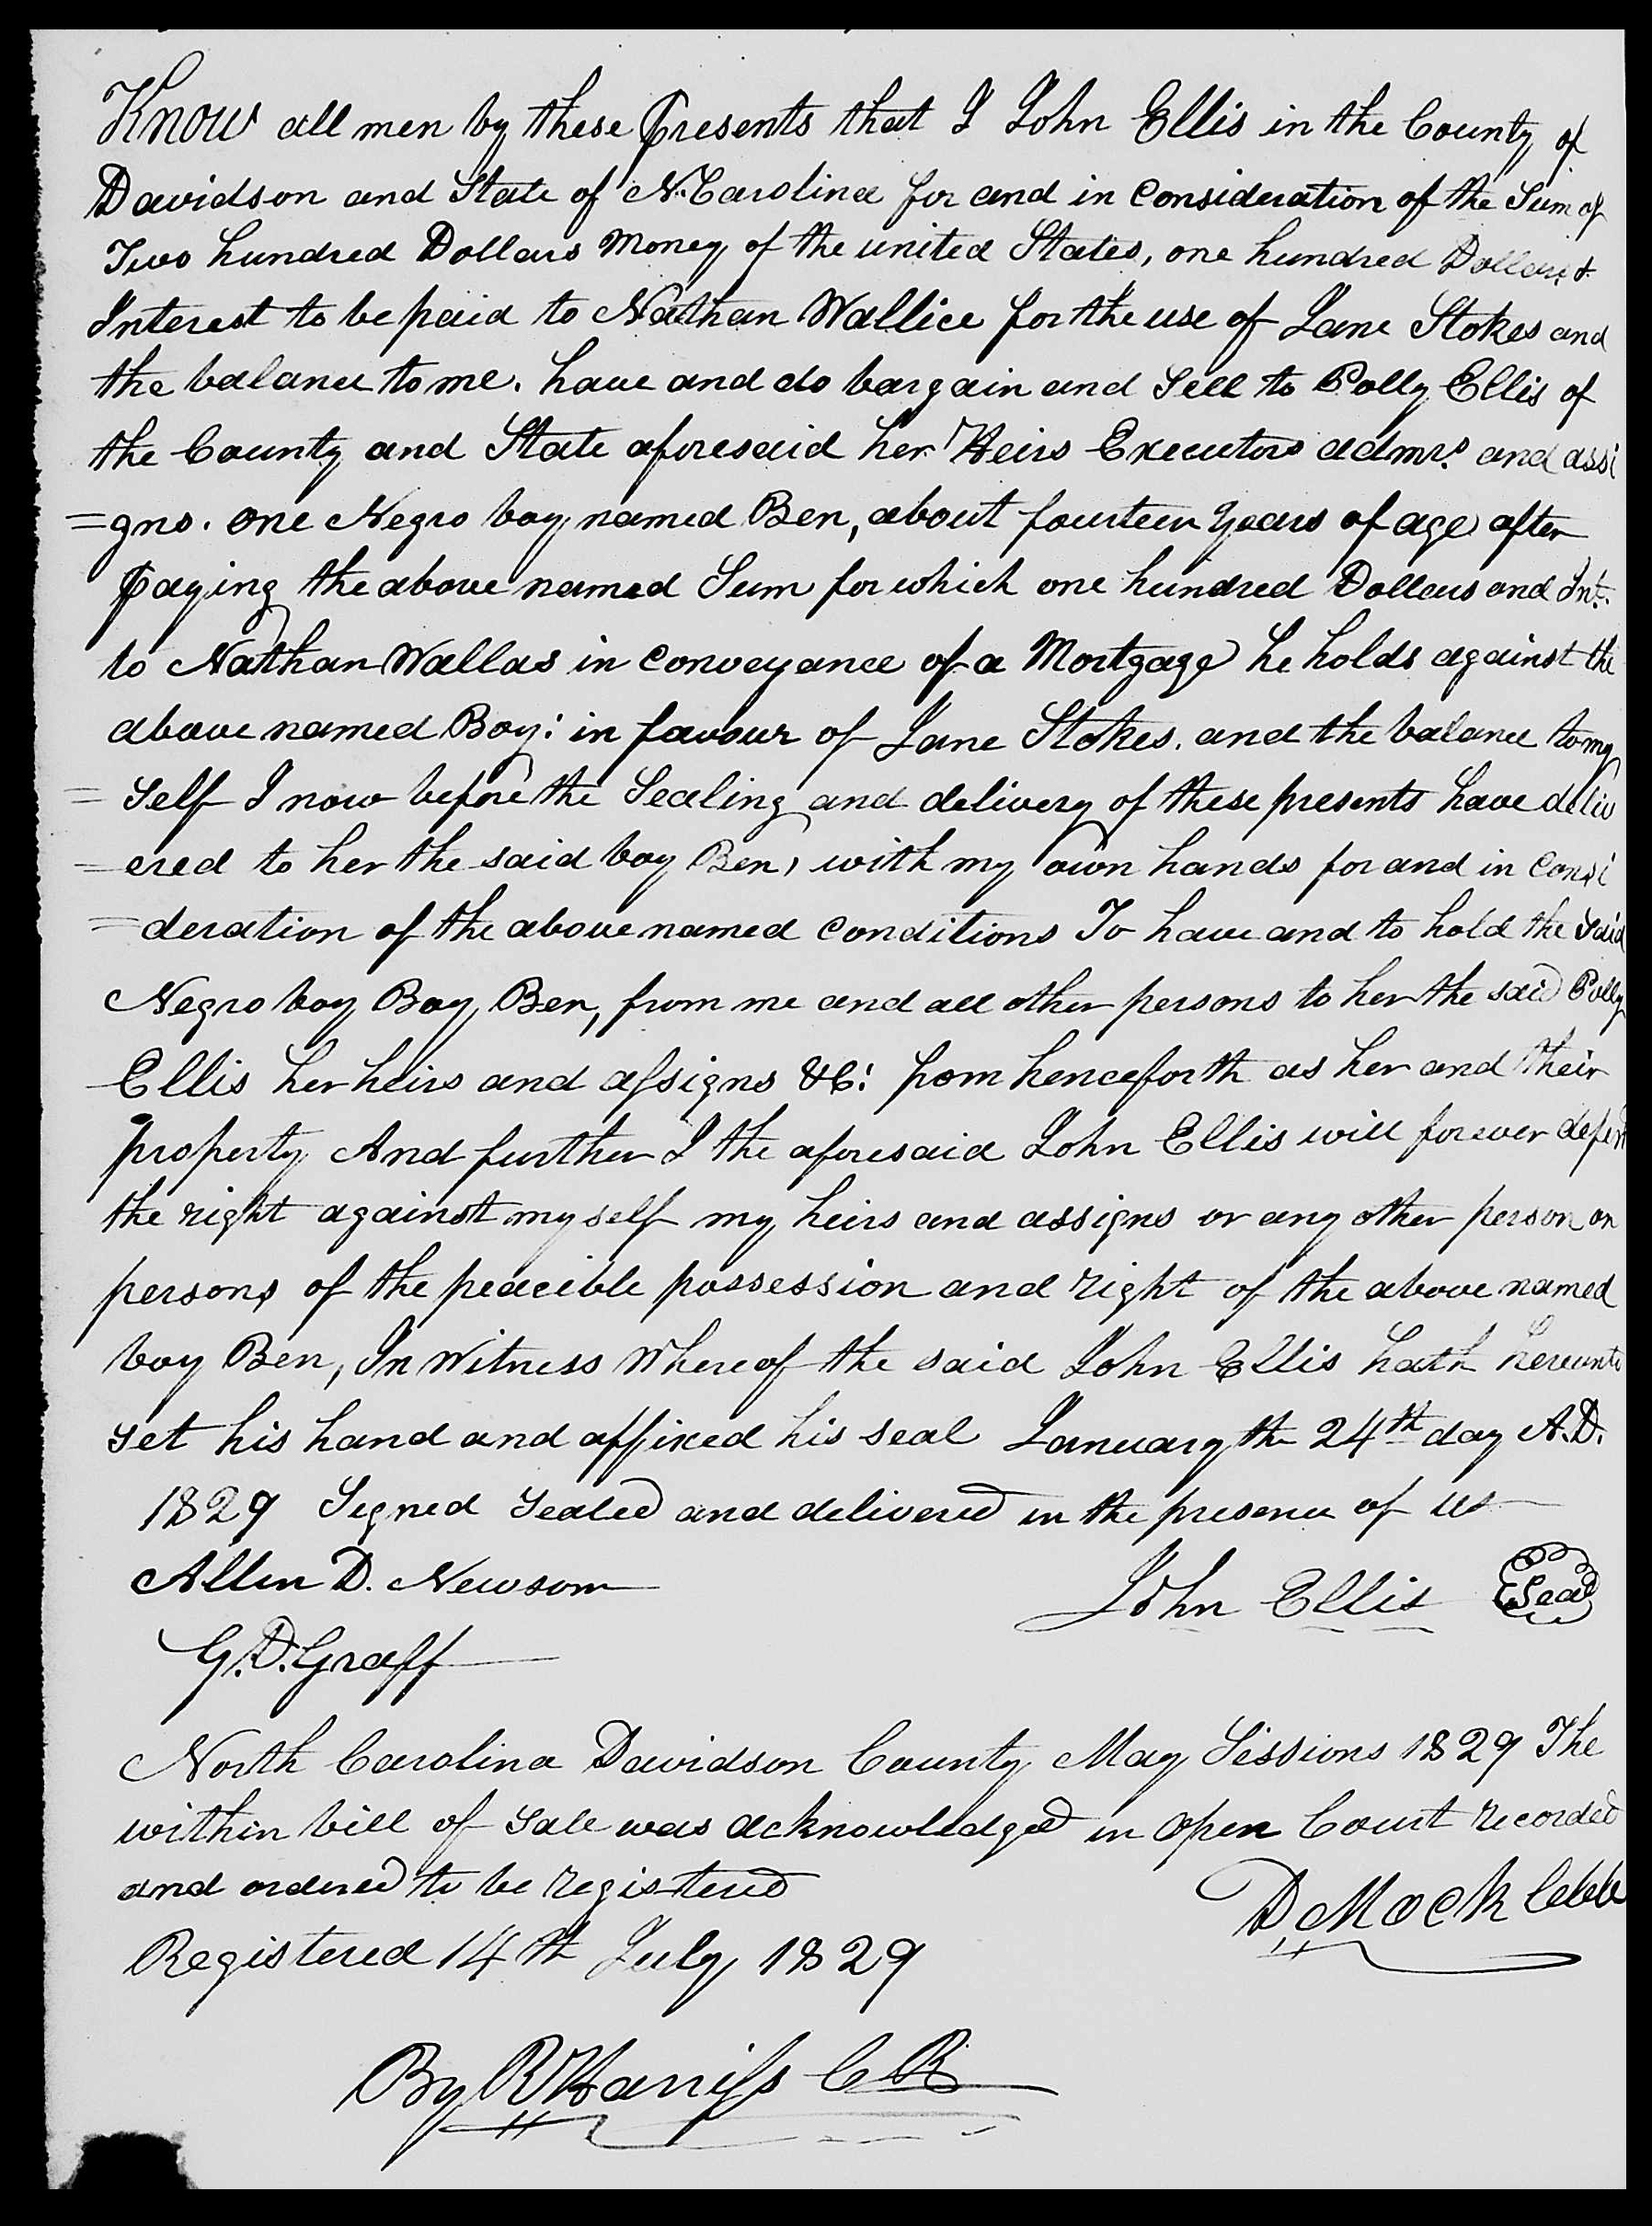 Know all men by these Presents that I John Ellis in the County of
Davidson and State of N. Carolina for and in Consideration of the Sum of
Two hundred Dollars Money of the united States, one hundred Dollars &
Interest to be paid to Nathan Wallice for the use of Jane Stokes and
the balance to me. have and do bargain and Sell to Polly Ellis of
the County and State aforesaid her Heirs Executors admrs. and assi
=gns. one Negro boy named Ben, about fourteen Years of age after
Paying the above named Sum for which one hundred Dollars and Int.
to Nathan Wallas in Conveyance of a Mortgage he holds against the
above named Boy: in favour of Jane Stokes. and the balance to my
=Self I now before the Sealing and delivery of these presents have deliv
=ered to her the said boy Ben, with my own hands for and in Consi
=deration of the above named Conditions To have and to hold the Said
Negro boy Boy Ben, from me and all other persons to her the said Polly
Ellis her heirs and assigns &C: from henceforth as her and their
property And further I the aforesaid John Ellis will forever defend
the right against my self my heirs and assigns or any other person or
persons of the peacible possession and right of the above named
boy Ben, In Witness Whereof the said John Ellis hath hereunto
set his hand and affixed his seal January the 24th day A.D.
1829 Signed Sealed and delivered in the presence of us
Allen D. Newsom
John Ellis Seal
G. D. Graff
North Carolina Davidson County May Sessions 1829 The
within bill of Sale was acknowledged in open Court recorded
and ordered to be registered
D. Mock
Registered 14th July 1829
By R Harriss C R